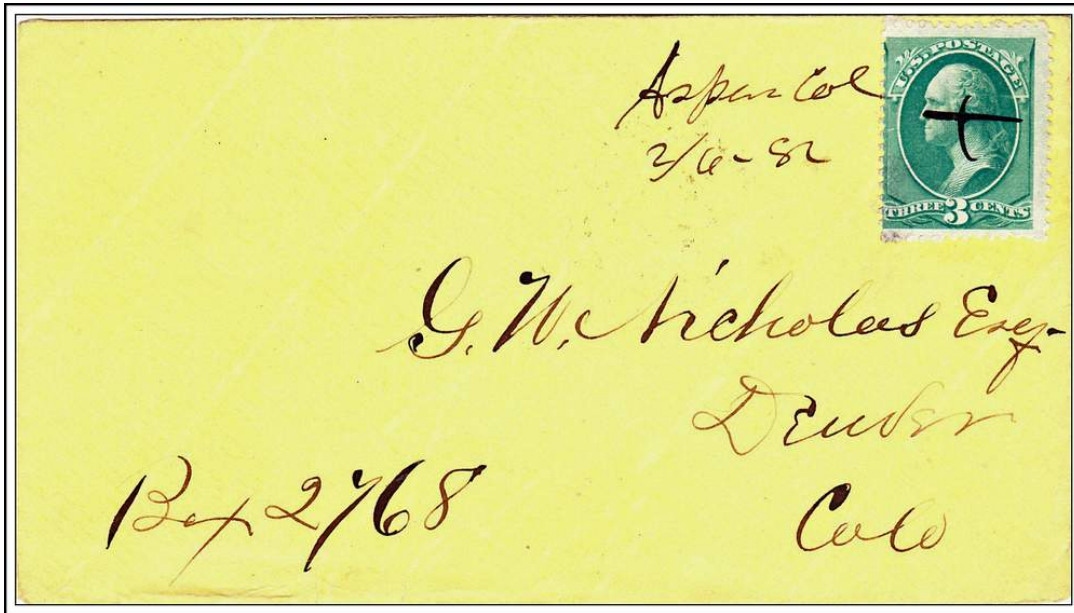 Aspen Col
2/6-82
U.S. POSTAGE
THREE 3 CENTS
G. W. Nicholas Esq.
Denver
Box 2768
Colo